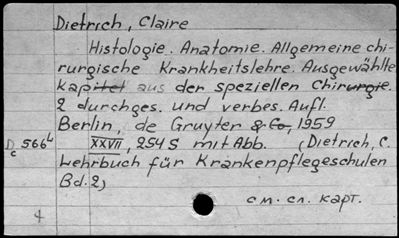 Dietrich, Claire
Histologie. Anatomie. Allgemeine chi-
rurgische Krankheitslehre. Ausgewählte
Kapitel aus der speziellen Chirurgie.
2 durchges. und verbes. Aufl.
Berlin, de Gruyter & Co, 1959
XXVII, 254 S mit Abb. (Dietrich, C.
Lehrbuch für Krankenpflegeschulen
Bd. 2)
см. сл. карт.
4